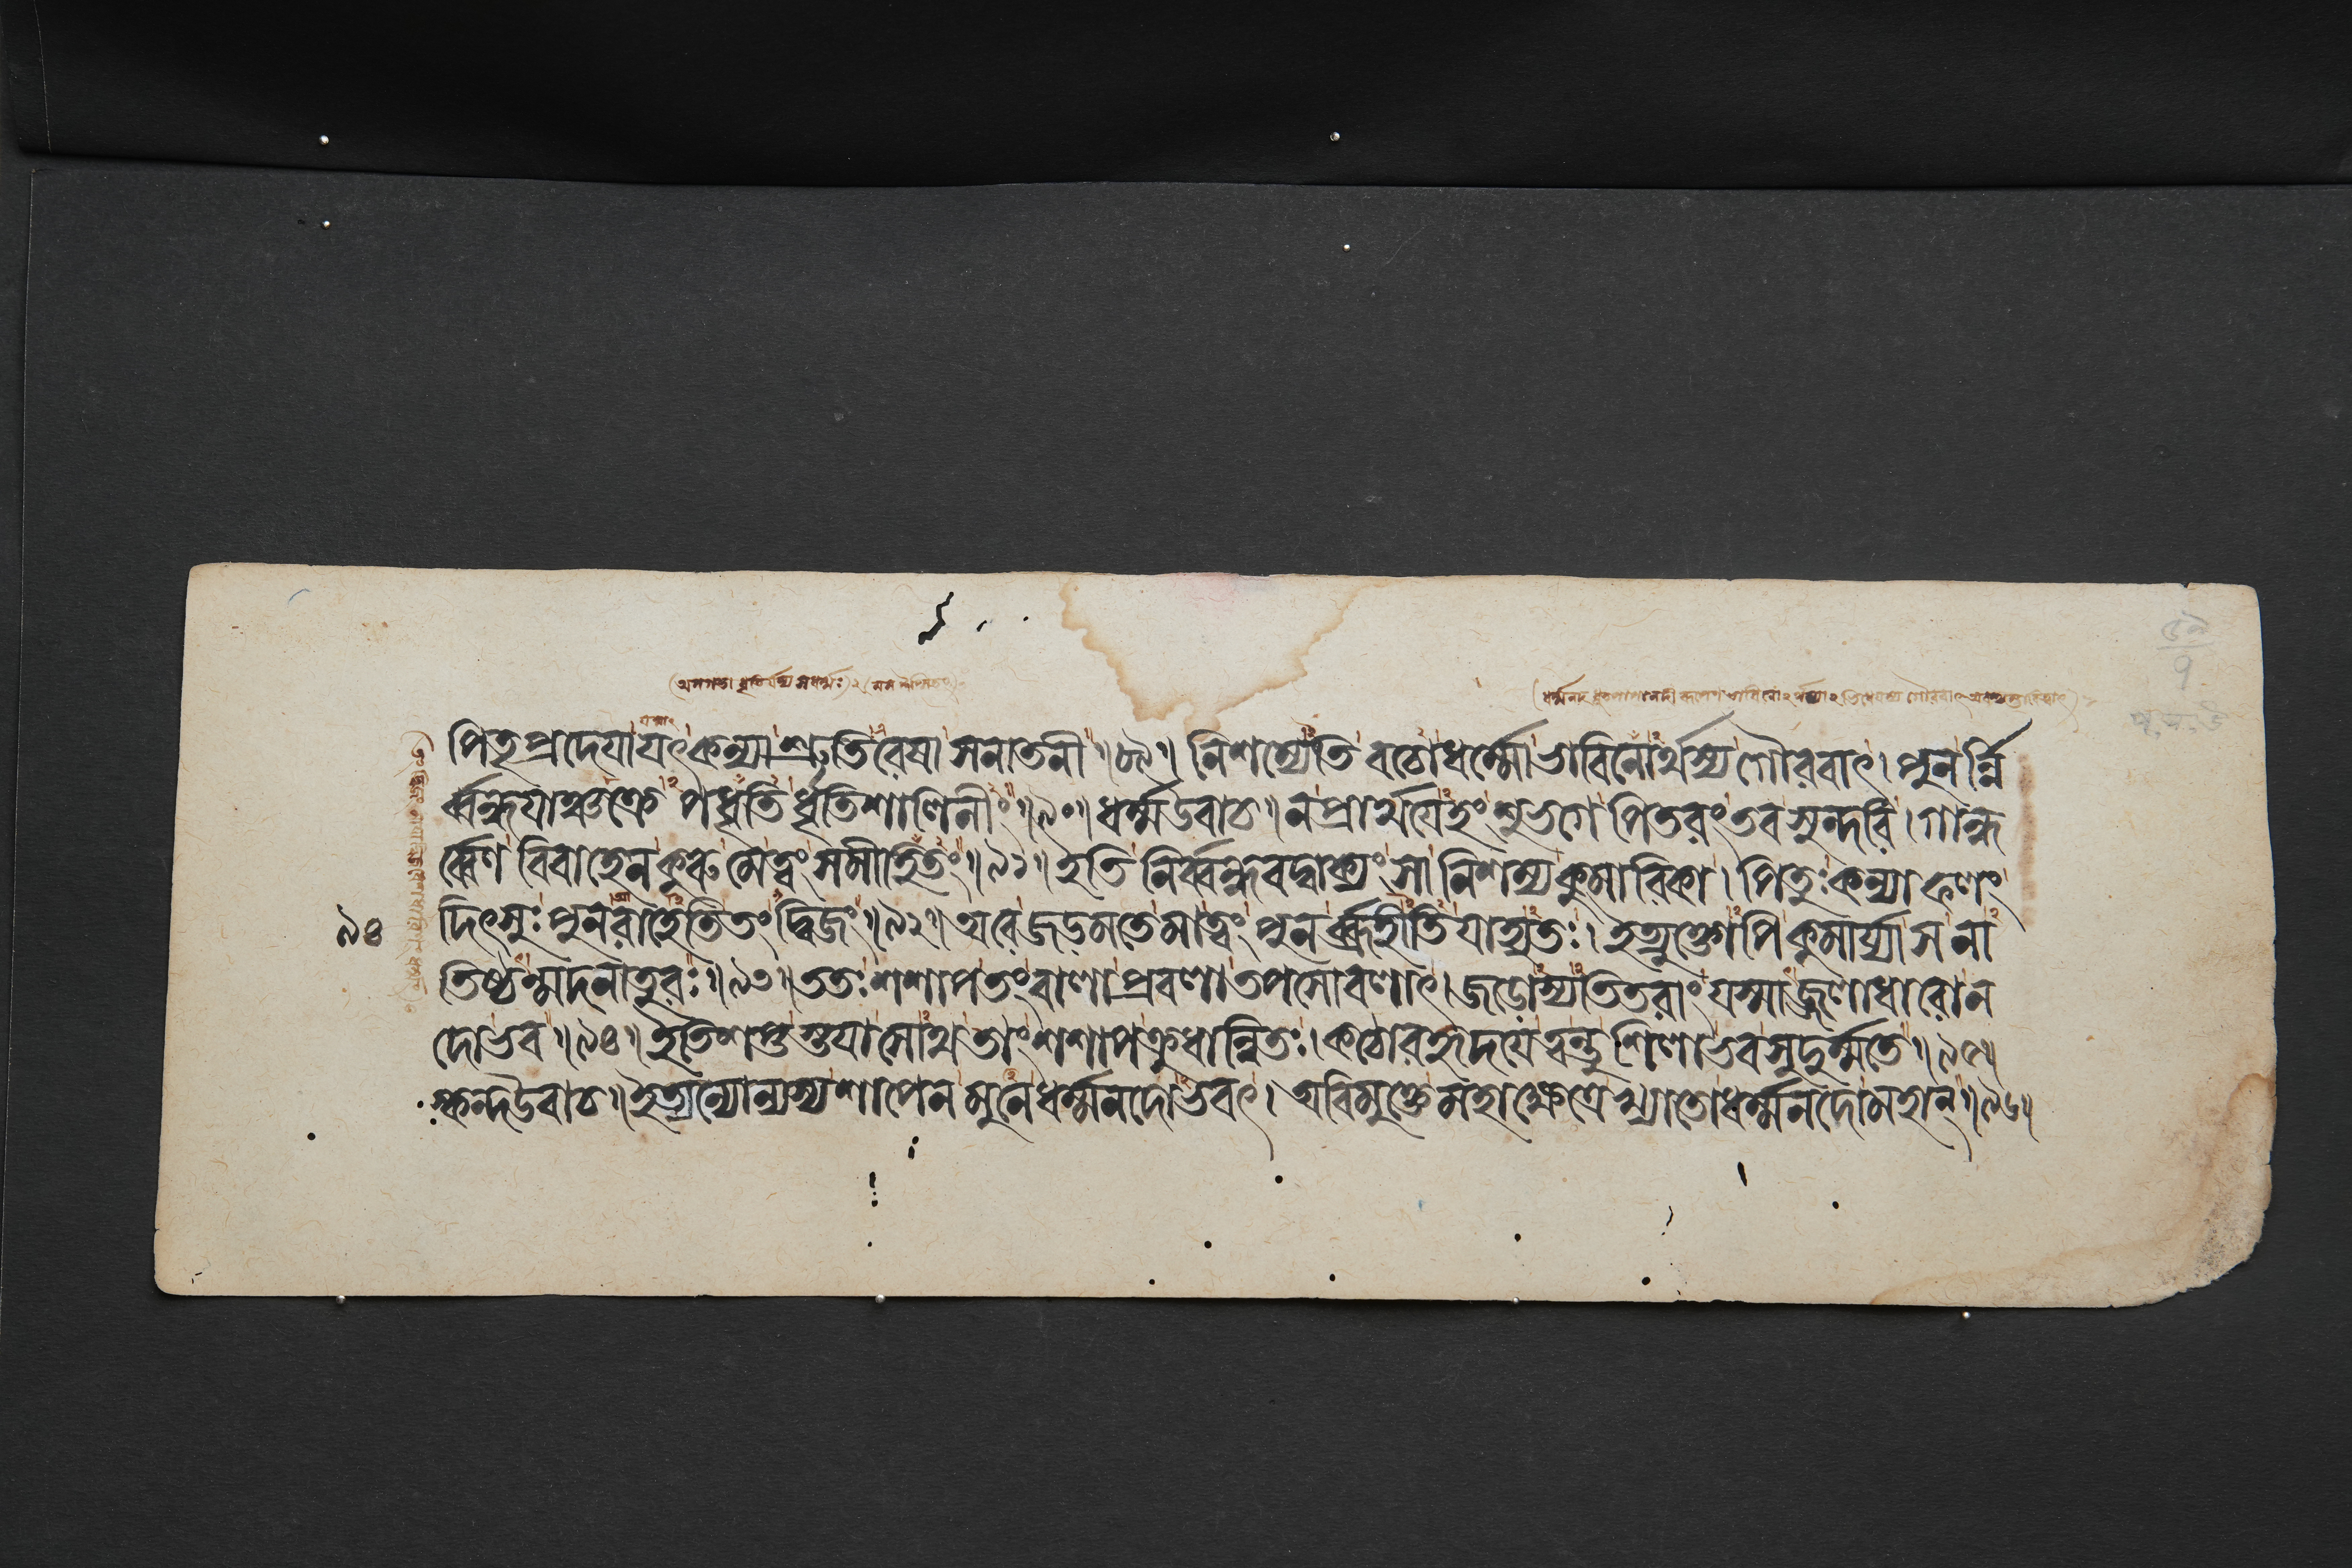 পিতৃপ্রদেয়া যৎ কন্যা শ্রুতিরেষা সনাতনী ॥৮৯॥ নিশম্যেতি বচো ধর্ম্মো ভাবিনোর্থস্য গৌরবাৎ। পুনর্ন্নি
র্ব্বন্ধয়াঞ্চক্রে পধৃতি র্ধৃতিশালিনীং ॥৯০॥ ধর্ম্ম উবাচ ॥ ন প্রার্থয়েহং সুভগে পিতরং তব সুন্দরি। গান্ধ
র্ব্বেণ বিবাহেন কুরু মে ত্বং সমীহিতং ॥৯১॥ ইতি নির্ব্বন্ধবদ্বাক্যং সা নিশম্য কুমারিকা। পিতুঃ কন্যাফলং
দিৎসুঃ পুনরাহেতি তং দ্বিজং ॥৯২॥ অরে জড়মতে মা ত্বং পুনর্ব্রূহীতি যাহ্যতঃ। ইত্যুক্তোপি কুমার্য্যা স না
৯৪
তিষ্ঠন্মদনাতুরঃ ॥৯৩॥ ততঃ শশাপ তং বালা প্রবলা তপসো বলাৎ। জড়োস্যতিতরাং যস্মাজ্জলাধারো ন
দো ভব ॥৯৪॥ ইতি শপ্তস্তয়া সোথ তাং শশাপ ক্রুধান্বিতঃ। কঠোরহৃদয়ে ত্বন্তু শিলা ভব সুদুর্ম্মতে ॥৯৫॥
স্কন্দ উবাচ ॥ ইত্যন্যোন্যস্য শাপেন মুনে ধর্ম্মনদোভবৎ। অবিমুক্তে মহাক্ষেত্রে খ্যাতো ধর্ম্মনদো মহান্ ॥৯৬॥